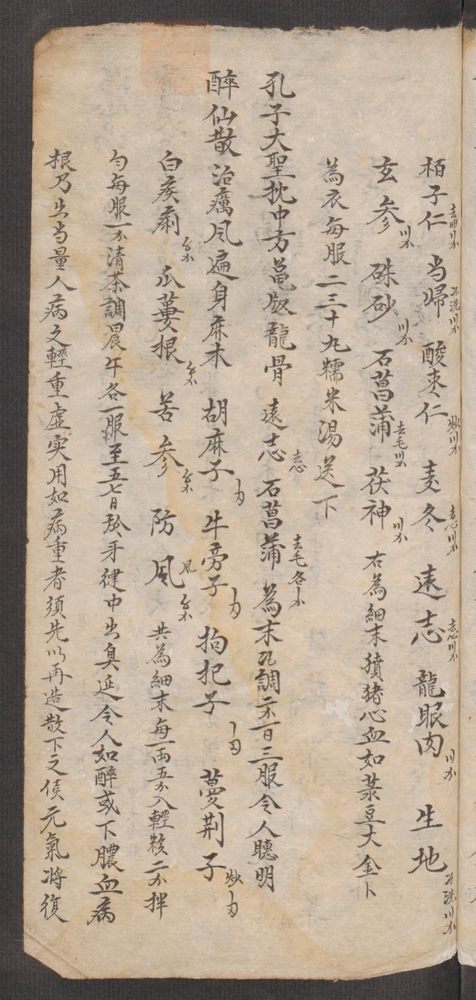 栢子仁 当歸 酸枣仁 麦冬 遠志 龍眼肉 生地
玄参 硃砂 石菖蒲 去毛 茯神 右為細末 猪心血如菉豆大金
為衣每服二三十九糯米湯送下
孔子大聖枕中方 龟版 龍骨 遠志 石菖蒲 去毛 為末 調 百三服令人聰明
醉仙散 治癘風遍身麻木 胡麻子 牛旁子 拘杞子 蔓荆子
白疾莉 瓜蔞根 苦参 防風 共為細末每一両五分入輕粉二分拌
勻每服一分清茶調晨午各一服至五七日於牙縫中出臭涎令人如醉或下膿血病
根乃出当量人病之輕重虛实用如病重者須先以再造散下之侯元氣将復